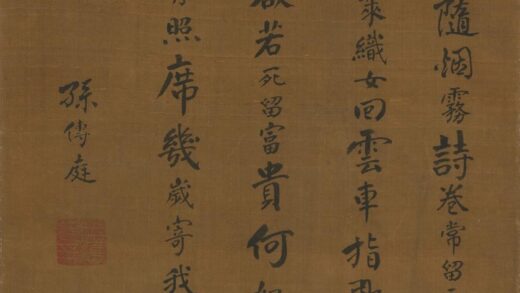 隨烟霧詩卷常留
萊織女回雲車指
欲若死留富貴何
照席幾歲寄我
孫傳庭